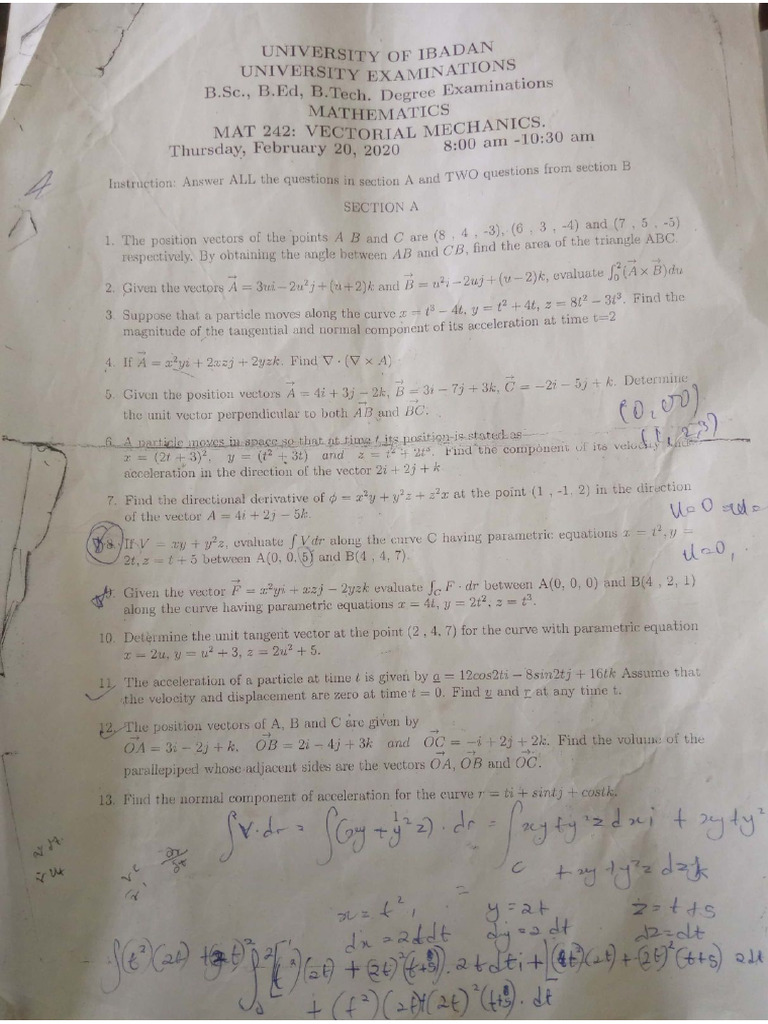 UNIVERSITY OF IBADAN
UNIVERSITY EXAMINATIONS
B.Sc., B.Ed, B.Tech. Degree Examinations
MATHEMATICS
MAT 242: VECTORIAL MECHANICS.
Thursday, February 20, 2020 8:00 am -10:30 am
Instruction: Answer ALL the questions in section A and TWO questions from section B
SECTION A
1. The position vectors of the points A B and C are (8 , 4 , -3), (6 , 3 , -4) and (7 , 5 , -5)
respectively. By obtaining the angle between AB and CB, find the area of the triangle ABC.
2. Given the vectors \vec{A} = 3ui−2u²j+(u+2)k and \vec{B} = u²i−2uj+(u−2)k, evaluate ∫₀²(\vec{A} × \vec{B})du
3. Suppose that a particle moves along the curve x = t³ − 4t, y = t² + 4t, z = 8t² − 3t³. Find the
magnitude of the tangential and normal component of its acceleration at time t=2
4. If \vec{A} = x²yi + 2xzj + 2yzk. Find ∇ · (∇ × A)
5. Given the position vectors \vec{A} = 4i + 3j − 2k, \vec{B} = 3i − 7j + 3k, \vec{C} = −2i − 5j + k. Determine
the unit vector perpendicular to both \vec{AB} and \vec{BC}.
(0, 00)
6. A particle moves in space so that at time t its position is stated as
x = (2t + 3)², y = (t² + 3t) and z = t³ + 2t². Find the component of its velocity and
acceleration in the direction of the vector 2i + 2j + k
7. Find the directional derivative of φ = x²y + y²z + z²x at the point (1 , -1, 2) in the direction
of the vector A = 4i + 2j − 5k.
8. If V = xy + y²z, evaluate ∫ V dr along the curve C having parametric equations x = t², y =
2t, z = t + 5 between A(0, 0, 5) and B(4 , 4, 7).
u=0,
9. Given the vector \vec{F} = x²yi + xzj − 2yzk evaluate ∫_C F · dr between A(0, 0, 0) and B(4 , 2, 1)
along the curve having parametric equations x = 4t, y = 2t², z = t³.
10. Determine the unit tangent vector at the point (2 , 4, 7) for the curve with parametric equation
x = 2u, y = u² + 3, z = 2u² + 5.
11. The acceleration of a particle at time t is given by a = 12cos2ti − 8sin2tj + 16tk Assume that
the velocity and displacement are zero at time t = 0. Find v and r at any time t.
12. The position vectors of A, B and C are given by
\vec{OA} = 3i − 2j + k, \vec{OB} = 2i − 4j + 3k and \vec{OC} = −i + 2j + 2k. Find the volume of the
parallepiped whose adjacent sides are the vectors \vec{OA}, \vec{OB} and \vec{OC}.
13. Find the normal component of acceleration for the curve r = ti + sintj + costk.
∫V·dr = ∫(xy + y²z)·dr = ∫xy + y²z dxi + xy + y²
C + xy + y²z dzk
x = t², y = 2t z = t+5
dx = 2tdt dy = 2 dt dz = dt